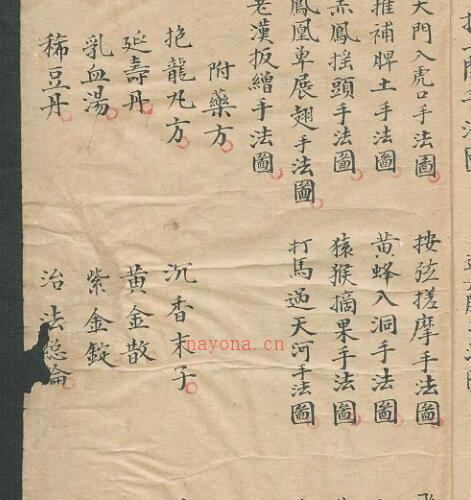 大門入虎口手法圖
按弦搓摩手法圖
推補脾土手法圖
黃蜂入洞手法圖
赤鳳搖頭手法圖
猿猴摘果手法圖
鳳凰单展翅手法圖
打馬過天河手法圖
老漢扳繒手法圖
附藥方
抱龍丸方
沉香末子
延壽丹
黃金散
乳血湯
紫金錠
稀豆丹
治法總論
nayona.cn